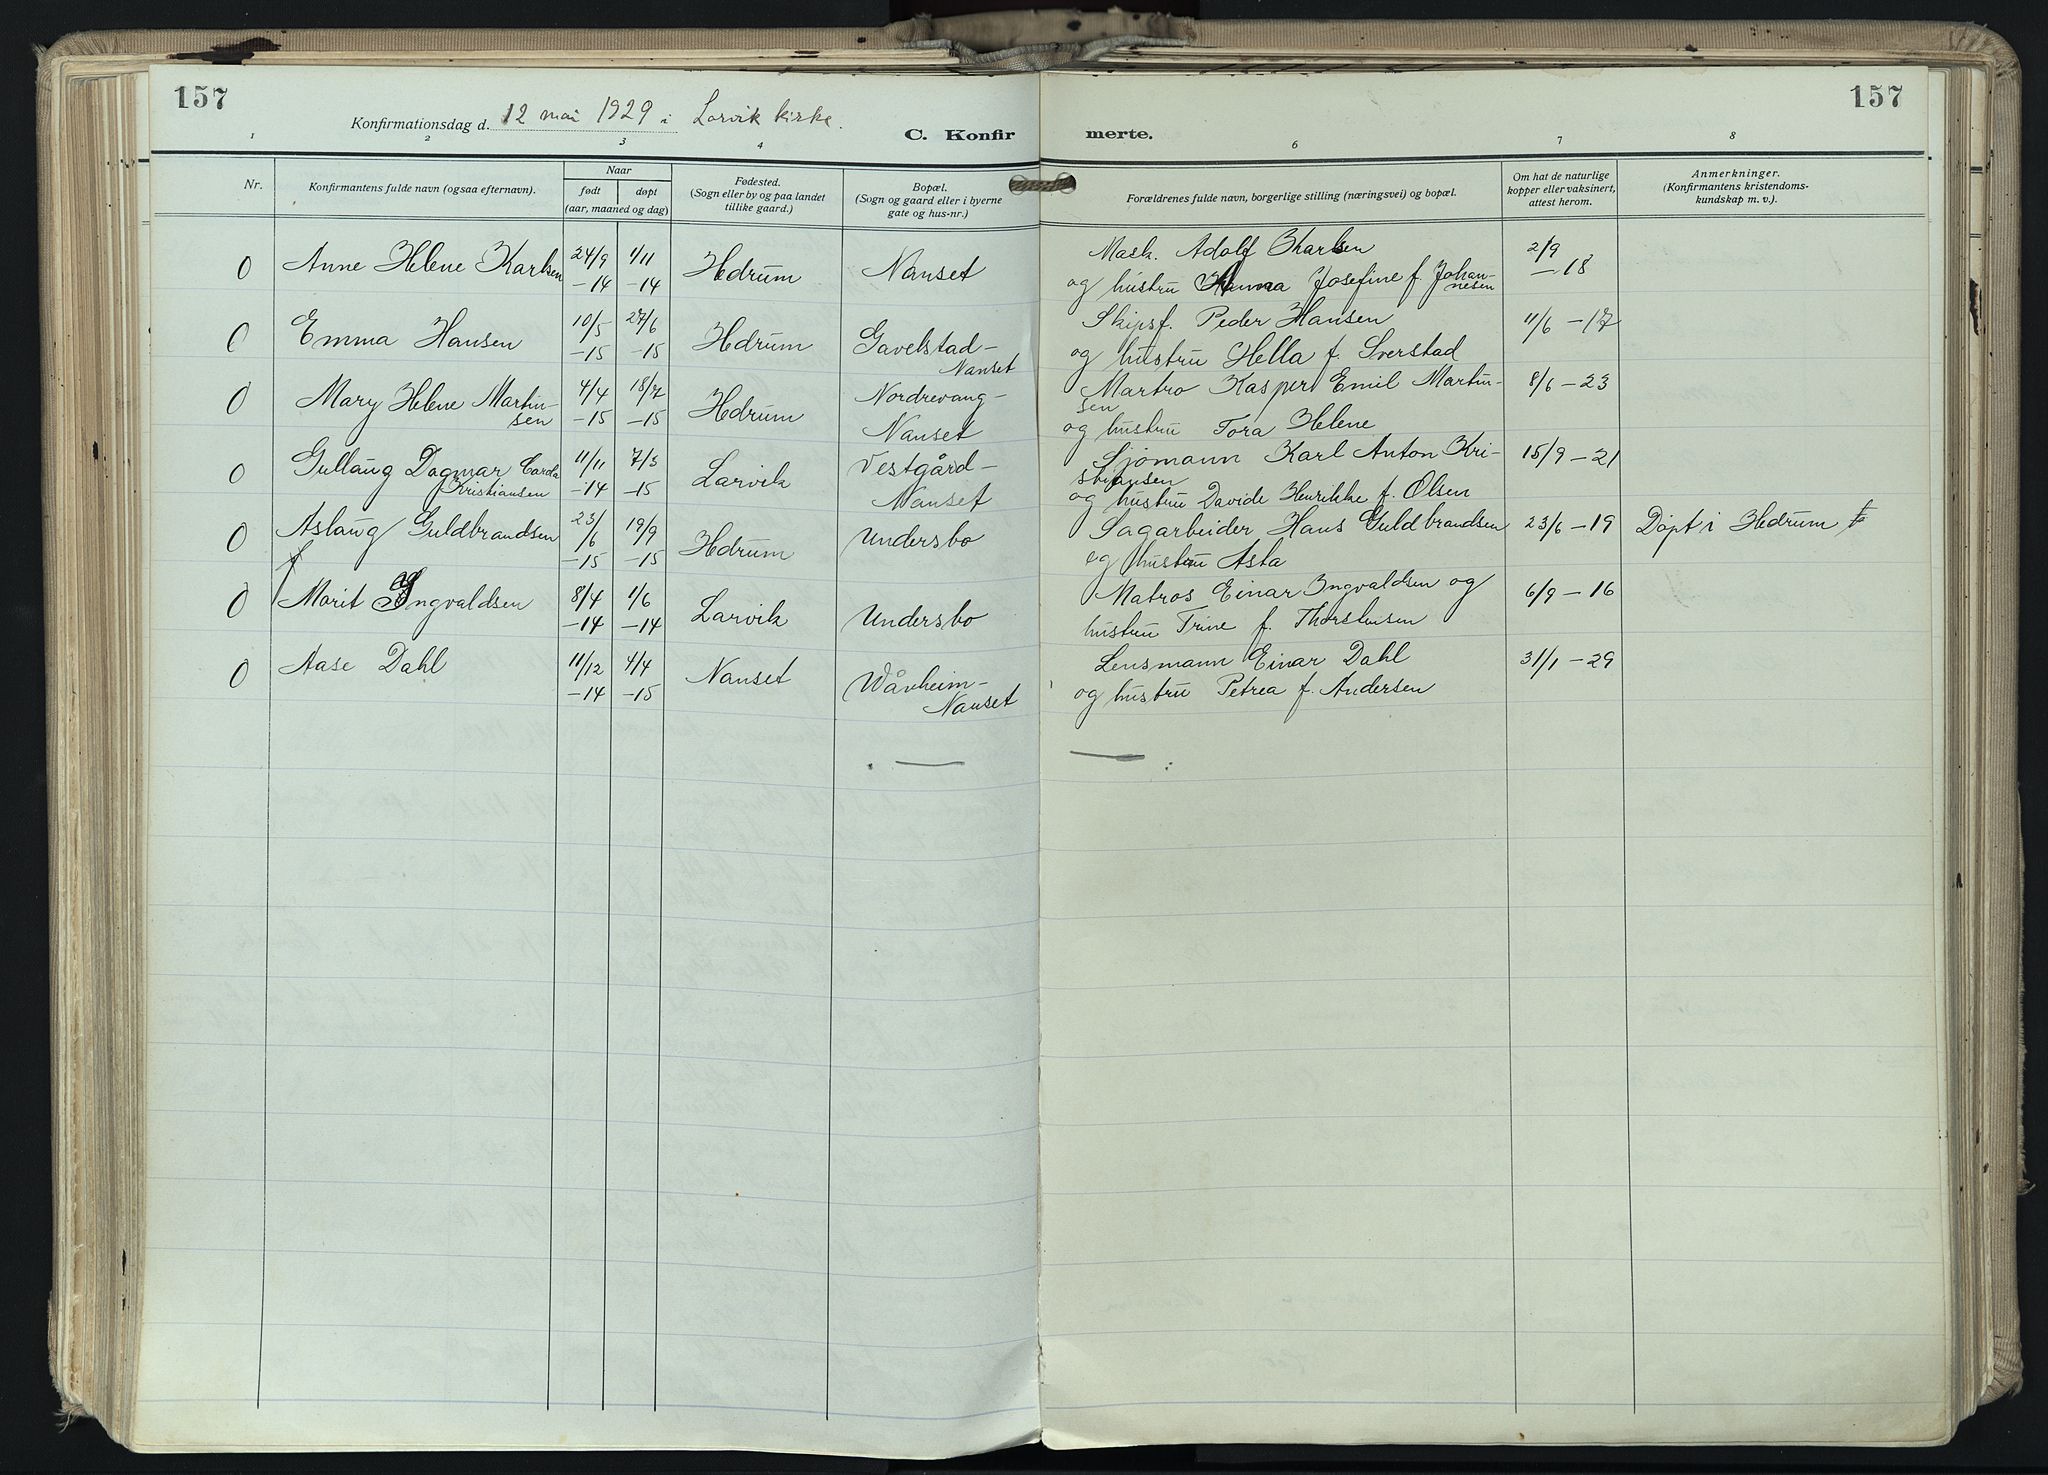 157
157
Konfirmationsdag d. 12 mai 1929 i Larvik kirke.
C. Konfir
merte.
1 2 3 4 6 7 8
Nr.
Konfirmantens fulde navn (ogsaa efternavn).
Naar
født
døpt
(aar, maaned og dag)
Fødested.
(Sogn eller by og paa landet
tillike gaard.)
Bopæl.
(Sogn og gaard eller i byerne
gate og hus-nr.)
Forældrenes fulde navn, borgerlige stilling (næringsvei) og bopæl.
Om hat de naturlige
kopper eller vaksinert,
attest herom.
Anmerkninger.
(Konfirmantens kristendoms-
kundskap m. v.).
0 Anne Helene Karlsen 24/9 1/11 Hedrum Nanset Mask. Adolf Karlsen 2/9
-14 -14 og hustru Anna Josefine f. Johan- -18
nesen
0 Emma Hansen 10/5 27/6 Hedrum Gavelstad- Skipsf. Peder Hansen 11/6 -17
-15 -15 Nanset og hustru Hella f. Sverstad
0 Mary Helene Martin- 4/4 18/7 Hedrum Nordrevang- Martro Kasper Emil Martin- 8/6 -23
sen -15 -15 Nanset sen
og hustru Tora Helene
0 Gullaug Dagmar Corda 11/11 7/3 Larvik Vestgård- Sjømann Karl Anton Kri- 15/9 -21
Kristiansen -14 -15 Nanset stiansen
og hustru Davide Henrikke f. Olsen
0 Aslaug Guldbrandsen 23/6 19/9 Hedrum Undersbo Sagarbeider Hans Guldbrandsen 23/6 -19 Døpt i Hedrum
-15 -15 og hustru Asta
0 Marit Ingvaldsen 8/4 1/6 Larvik Undersbo Matros Einar Ingvaldsen og 6/9 -16
-14 -14 hustru Trine f. Thorstensen
0 Aase Dahl 11/12 4/4 Nanset Wåvheim- Lensmann Einar Dahl 31/1 -29
-14 -15 Nanset og hustru Petrea f. Andersen